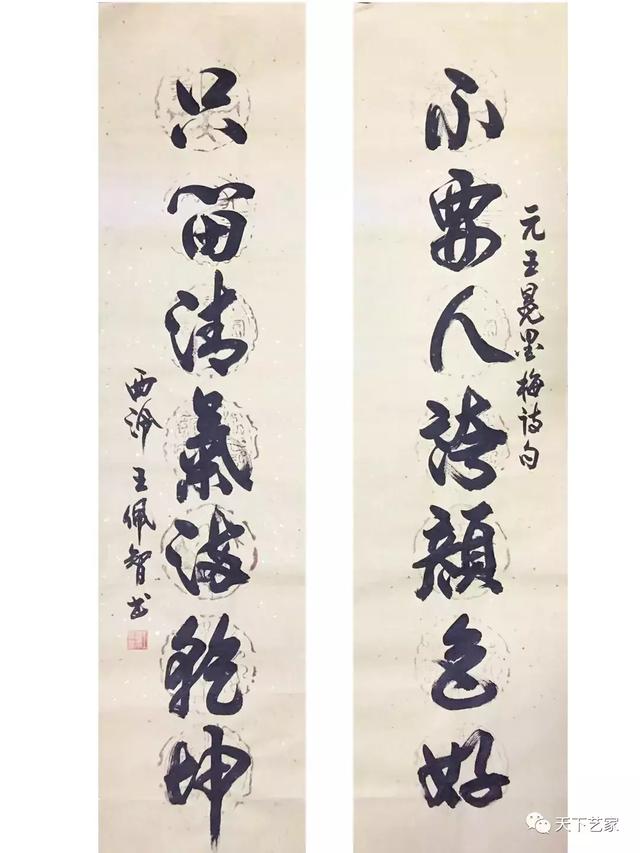 元王冕墨梅詩句
不要人誇顏色好
只留清氣滿乾坤
西泠王佩智書
天下艺家